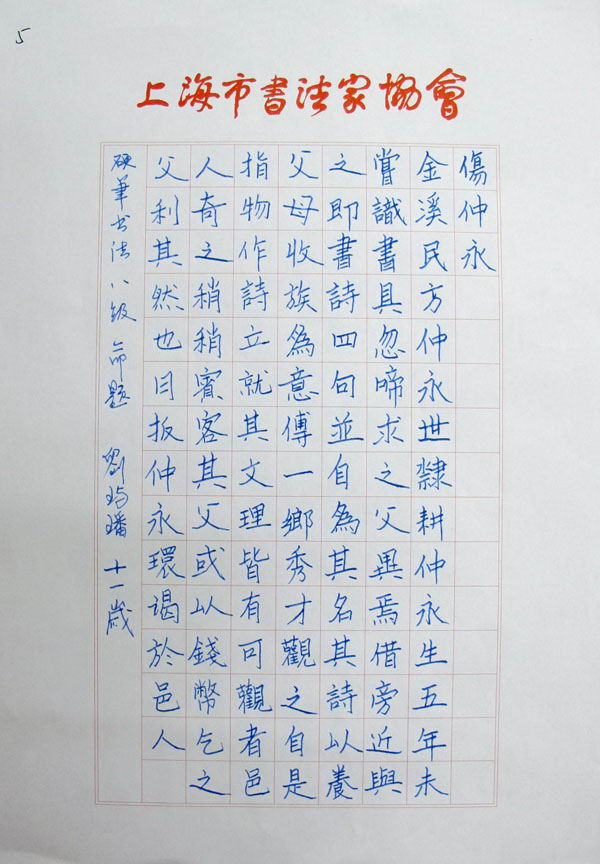 5
上海市書法家協會
傷仲永
金溪民方仲永世隸耕仲永生五年未
嘗識書具忽啼求之父異焉借旁近與
之即書詩四句並自為其名其詩以養
父母收族為意傳一鄉秀才觀之自是
指物作詩立就其文理皆有可觀者邑
人奇之稍稍賓客其父或以錢幣乞之
父利其然也日扳仲永環谒於邑人
硬筆书法八级命题 劉璠十一歲